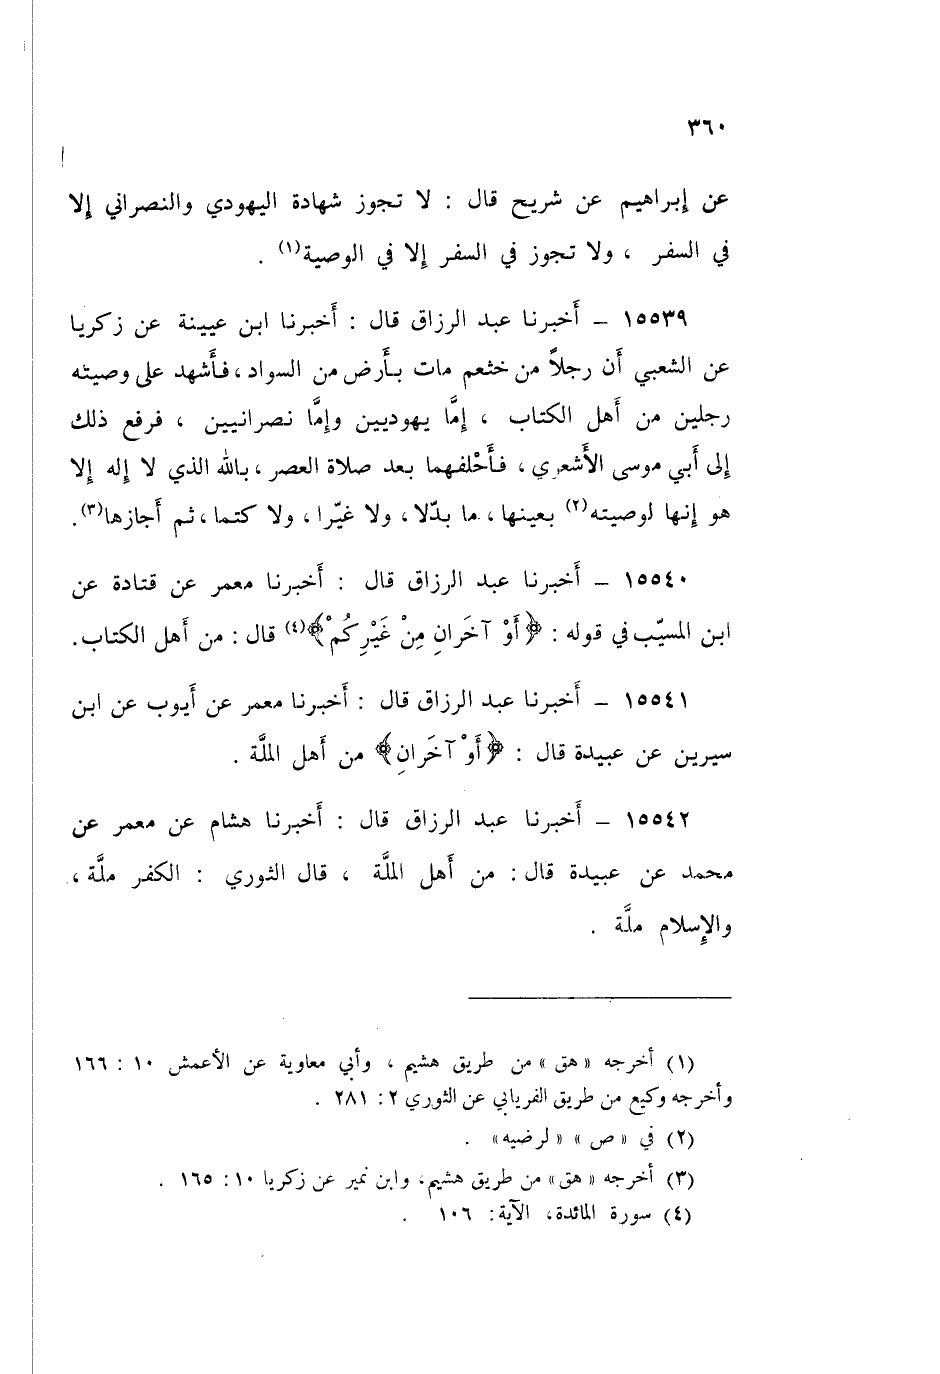 ٣٦٠
عن إبراهيم عن شريح قال : لا تجوز شهادة اليهودي والنصراني إلا
في السفر ، ولا تجوز في السفر إلا في الوصية(١) .
١٥٥٣٩ – أخبرنا عبد الرزاق قال : أخبرنا ابن عيينة عن زكريا
عن الشعبي أن رجلاً من خثعم مات بأرض من السواد ، فأشهد على وصيته
رجلين من أهل الكتاب ، إمَّا يهوديين وإمَّا نصرانيين ، فرفع ذلك
إلى أبي موسى الأشعري ، فأحْلفهما بعد صلاة العصر ، بالله الذي لا إله إلا
هو إنها لوصيته(٢) بعينها ، ما بدّلا ، ولا غيّرا ، ولا كتما ، ثم أجازها(٣).
١٥٥٤٠ – أخبرنا عبد الرزاق قال : أخبرنا معمر عن قتادة عن
ابن المسيّب في قوله : ﴿أَوْ آخَرانِ مِنْ غَيْرِكُمْ﴾(٤) قال : من أهل الكتاب.
١٥٥٤١ – أخبرنا عبد الرزاق قال : أخبرنا معمر عن أيوب عن ابن
سيرين عن عبيدة قال : ﴿أَوْ آخَرانِ﴾ من أهل الملَّة .
١٥٥٤٢ – أخبرنا عبد الرزاق قال : أخبرنا هشام عن معمر عن
محمد عن عبيدة قال : من أهل الملَّة ، قال الثوري : الكفر ملَّة ،
والإسلام ملَّة .
(١) أخرجه «هق» من طريق هشيم ، وأبي معاوية عن الأعمش ١٠ : ١٦٦
وأخرجه وكيع من طريق الفريابي عن الثوري ٢ : ٢٨١ .
(٢) في «ص» «لرضيه» .
(٣) أخرجه «هق» من طريق هشيم، وابن نمير عن زكريا ١٠ : ١٦٥ .
(٤) سورة المائدة، الآية: ١٠٦ .